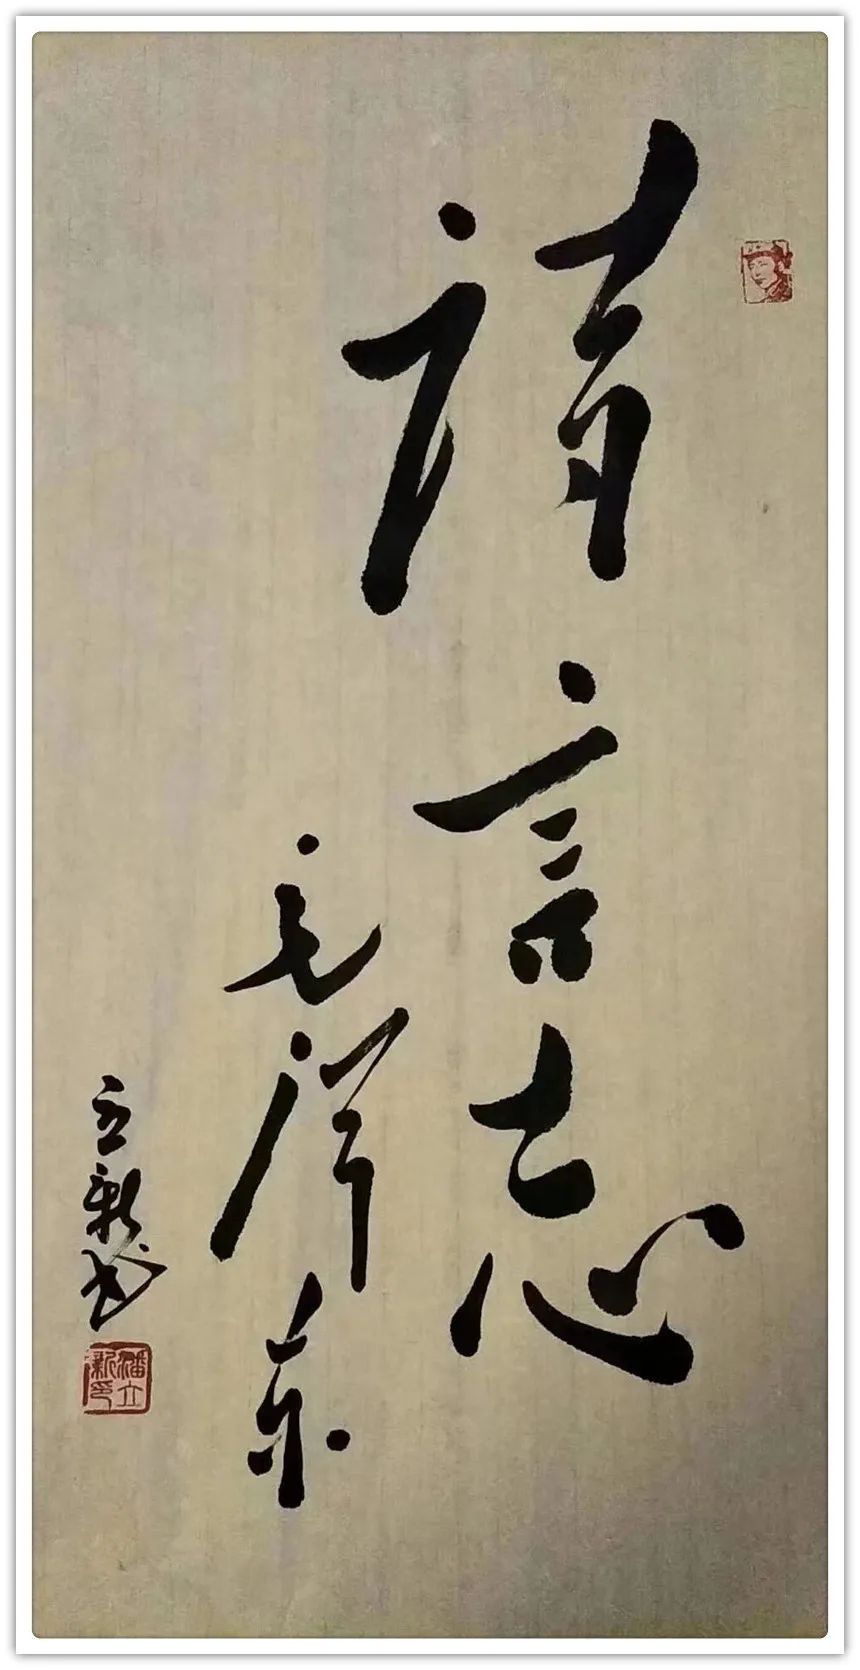 诗言志
毛泽东
立新书
潘立新印